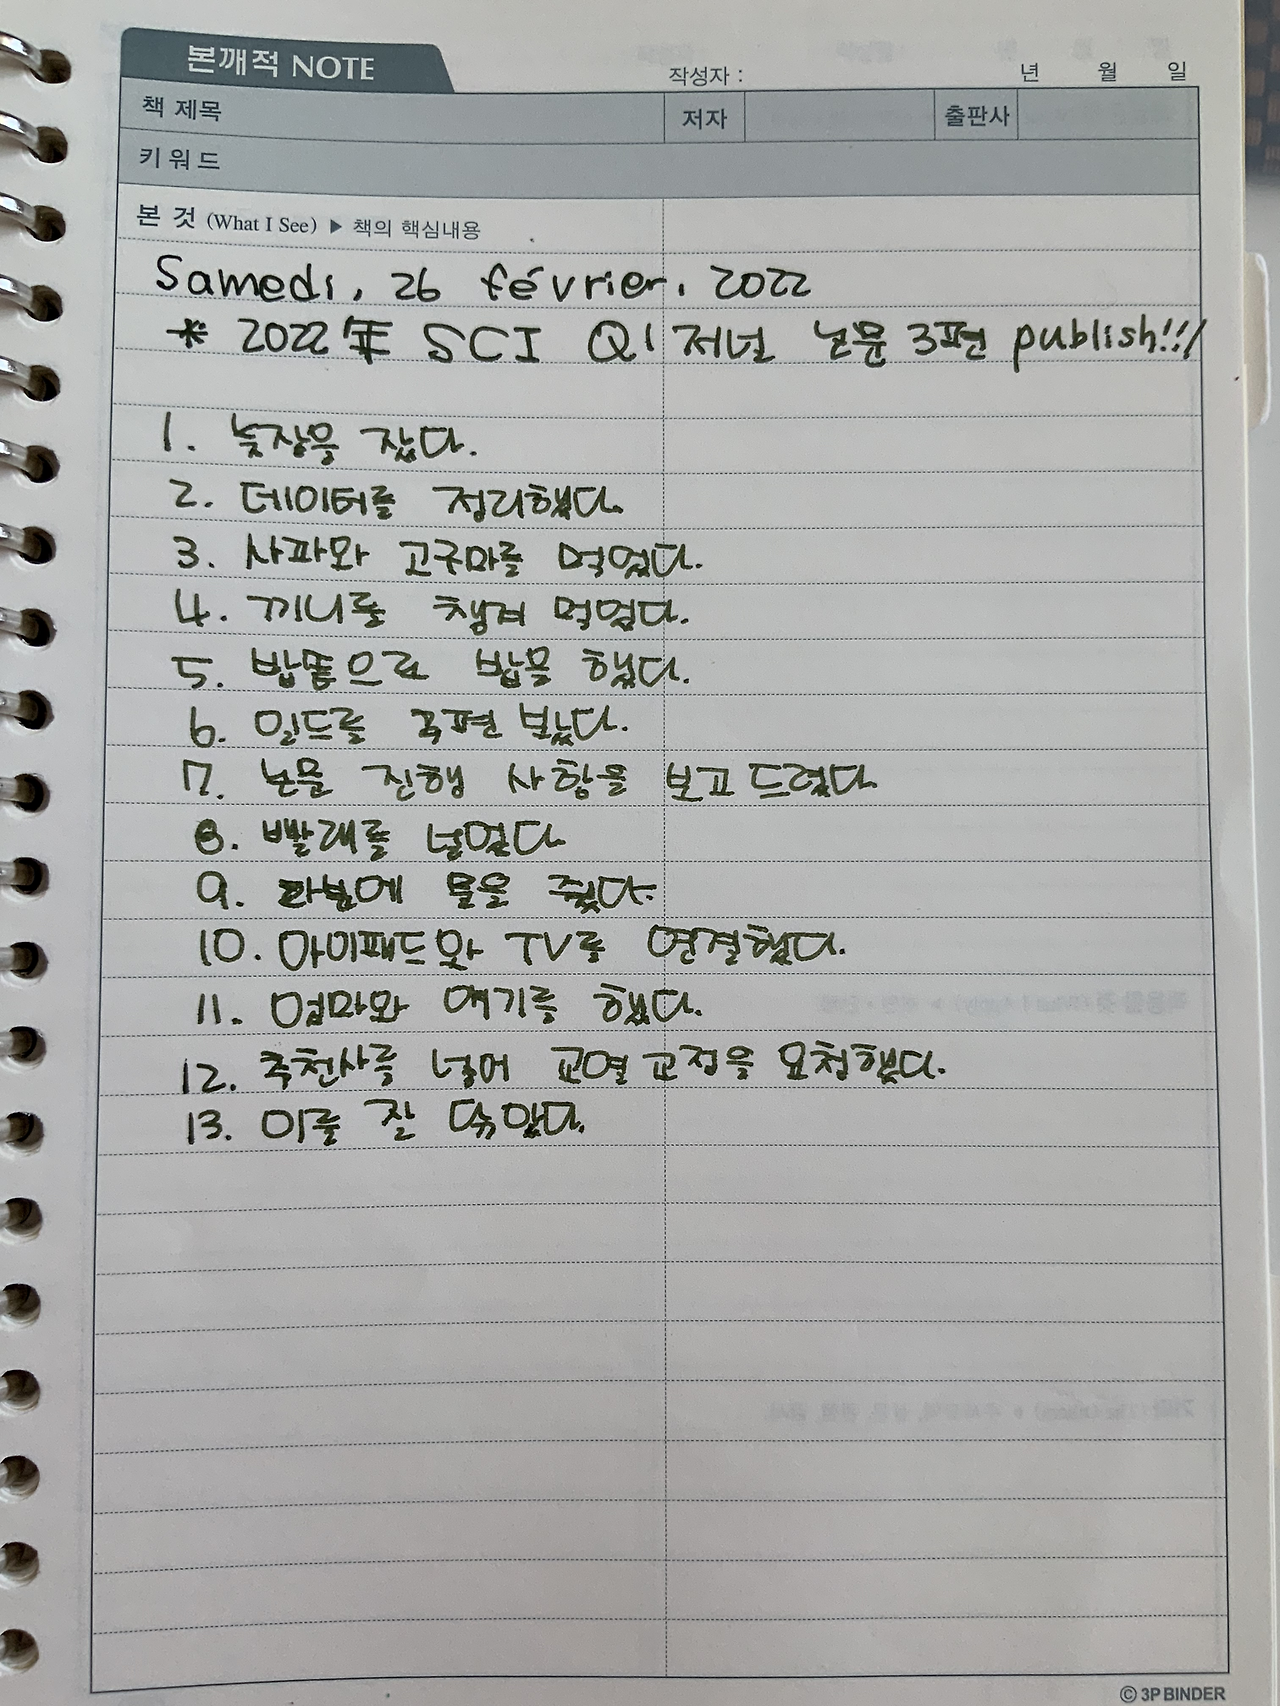 본깨적 NOTE
작성자 : 년 월 일
책 제목 저자 출판사
키워드
본 것 (What I See) ▶ 책의 핵심내용
Samedi, 26 février, 2022
* 2022年 SCI Q1 저널 논문 3편 publish!!!
1. 늦장을 잤다.
2. 데이터를 정리했다.
3. 사과와 고구마를 먹었다.
4. 끼니를 챙겨 먹었다.
5. 밥솥으로 밥을 했다.
6. 미드를 2편 봤다.
7. 논문 진행 사항을 보고 드렸다.
8. 빨래를 널었다
9. 화분에 물을 줬다.
10. 아이패드와 TV를 연결했다.
11. 엄마와 얘기를 했다.
12. 추천사를 넣어 교열 교정을 요청했다.
13. 이를 잘 닦았다.
© 3P BINDER